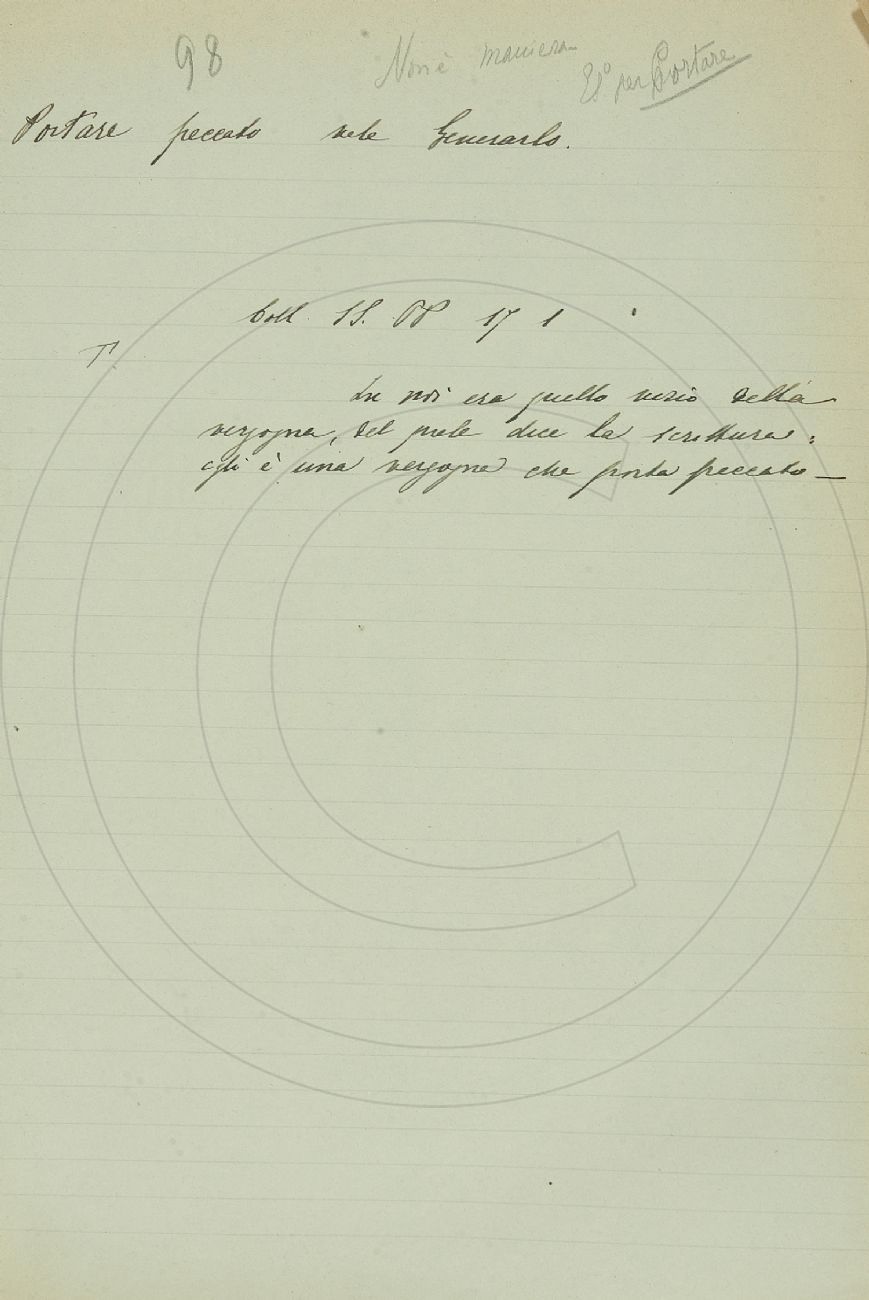 98
Non è maniera
Es° per Portare
Portare peccato vale Generarlo.
Coll. SS. PP 17 1
In noi era quello vizio della
vergogna, del quale dice la scrittura:
egli è una vergogna che porta peccato —